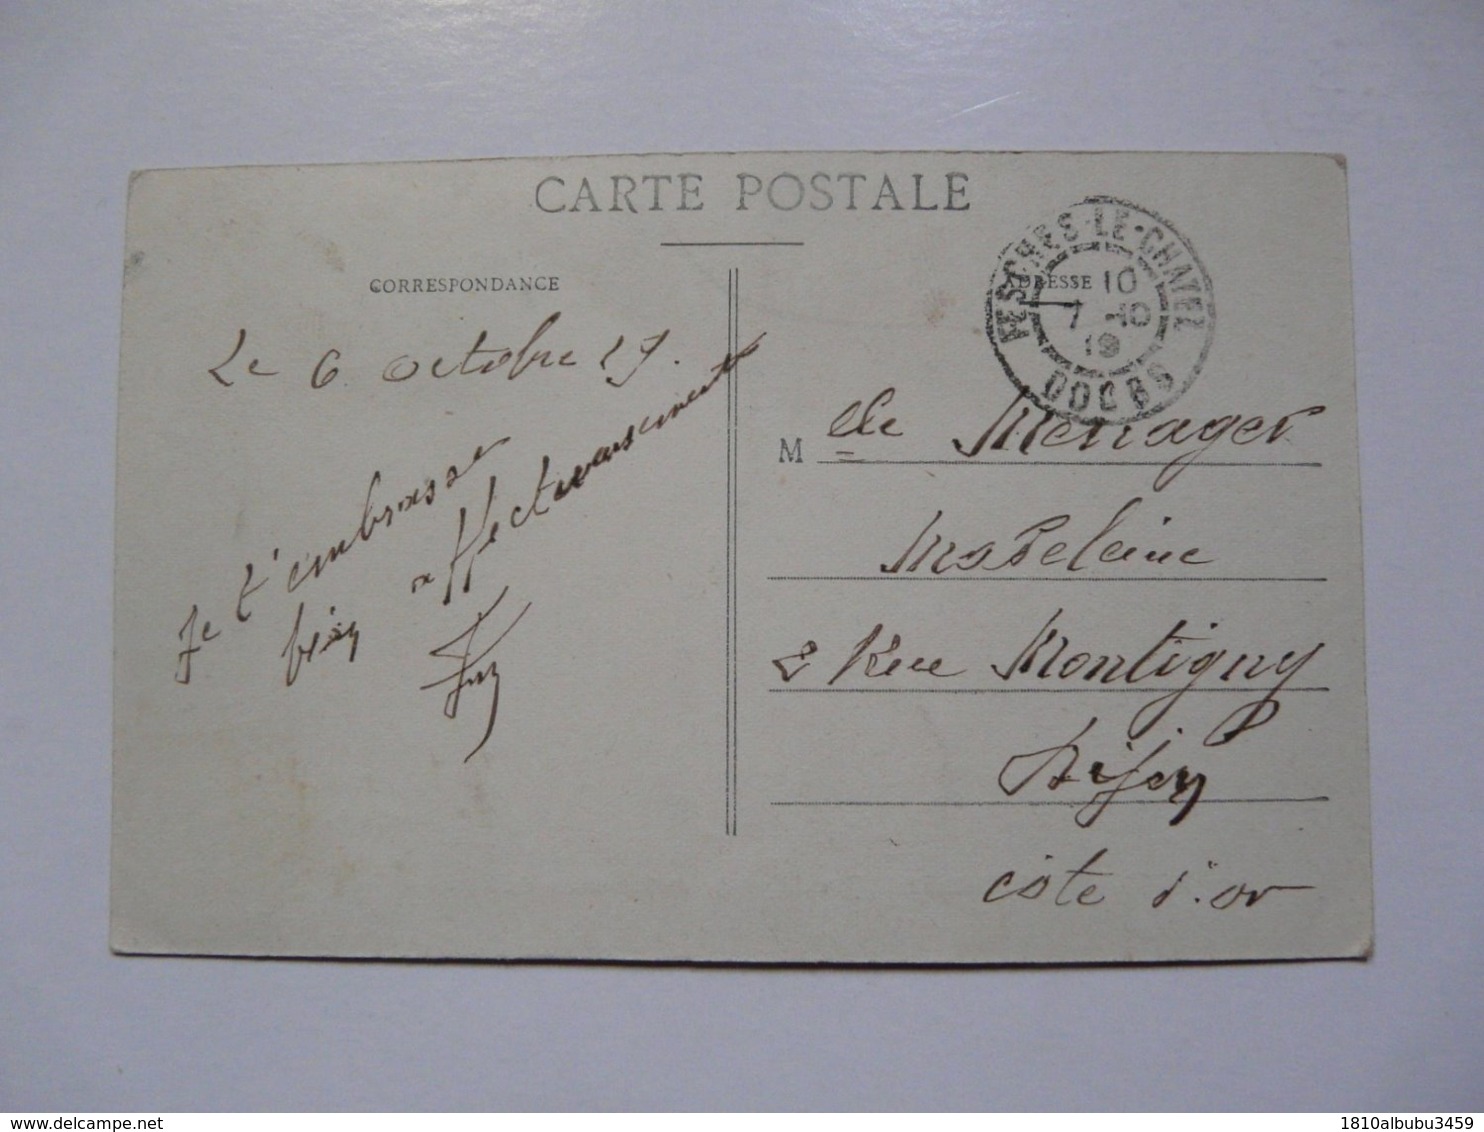 CARTE POSTALE
CORRESPONDANCE
Le 6 octobre 19.
Je t'embrasse
bien affectueusement
ADRESSE
FESCHES-LE-CHATEL
10
7 -10
19
DOUBS
M elle Menager
Madeleine
2 Rue Montigny
Dijon
côte d'or
delcampe.net
1810albubu3459